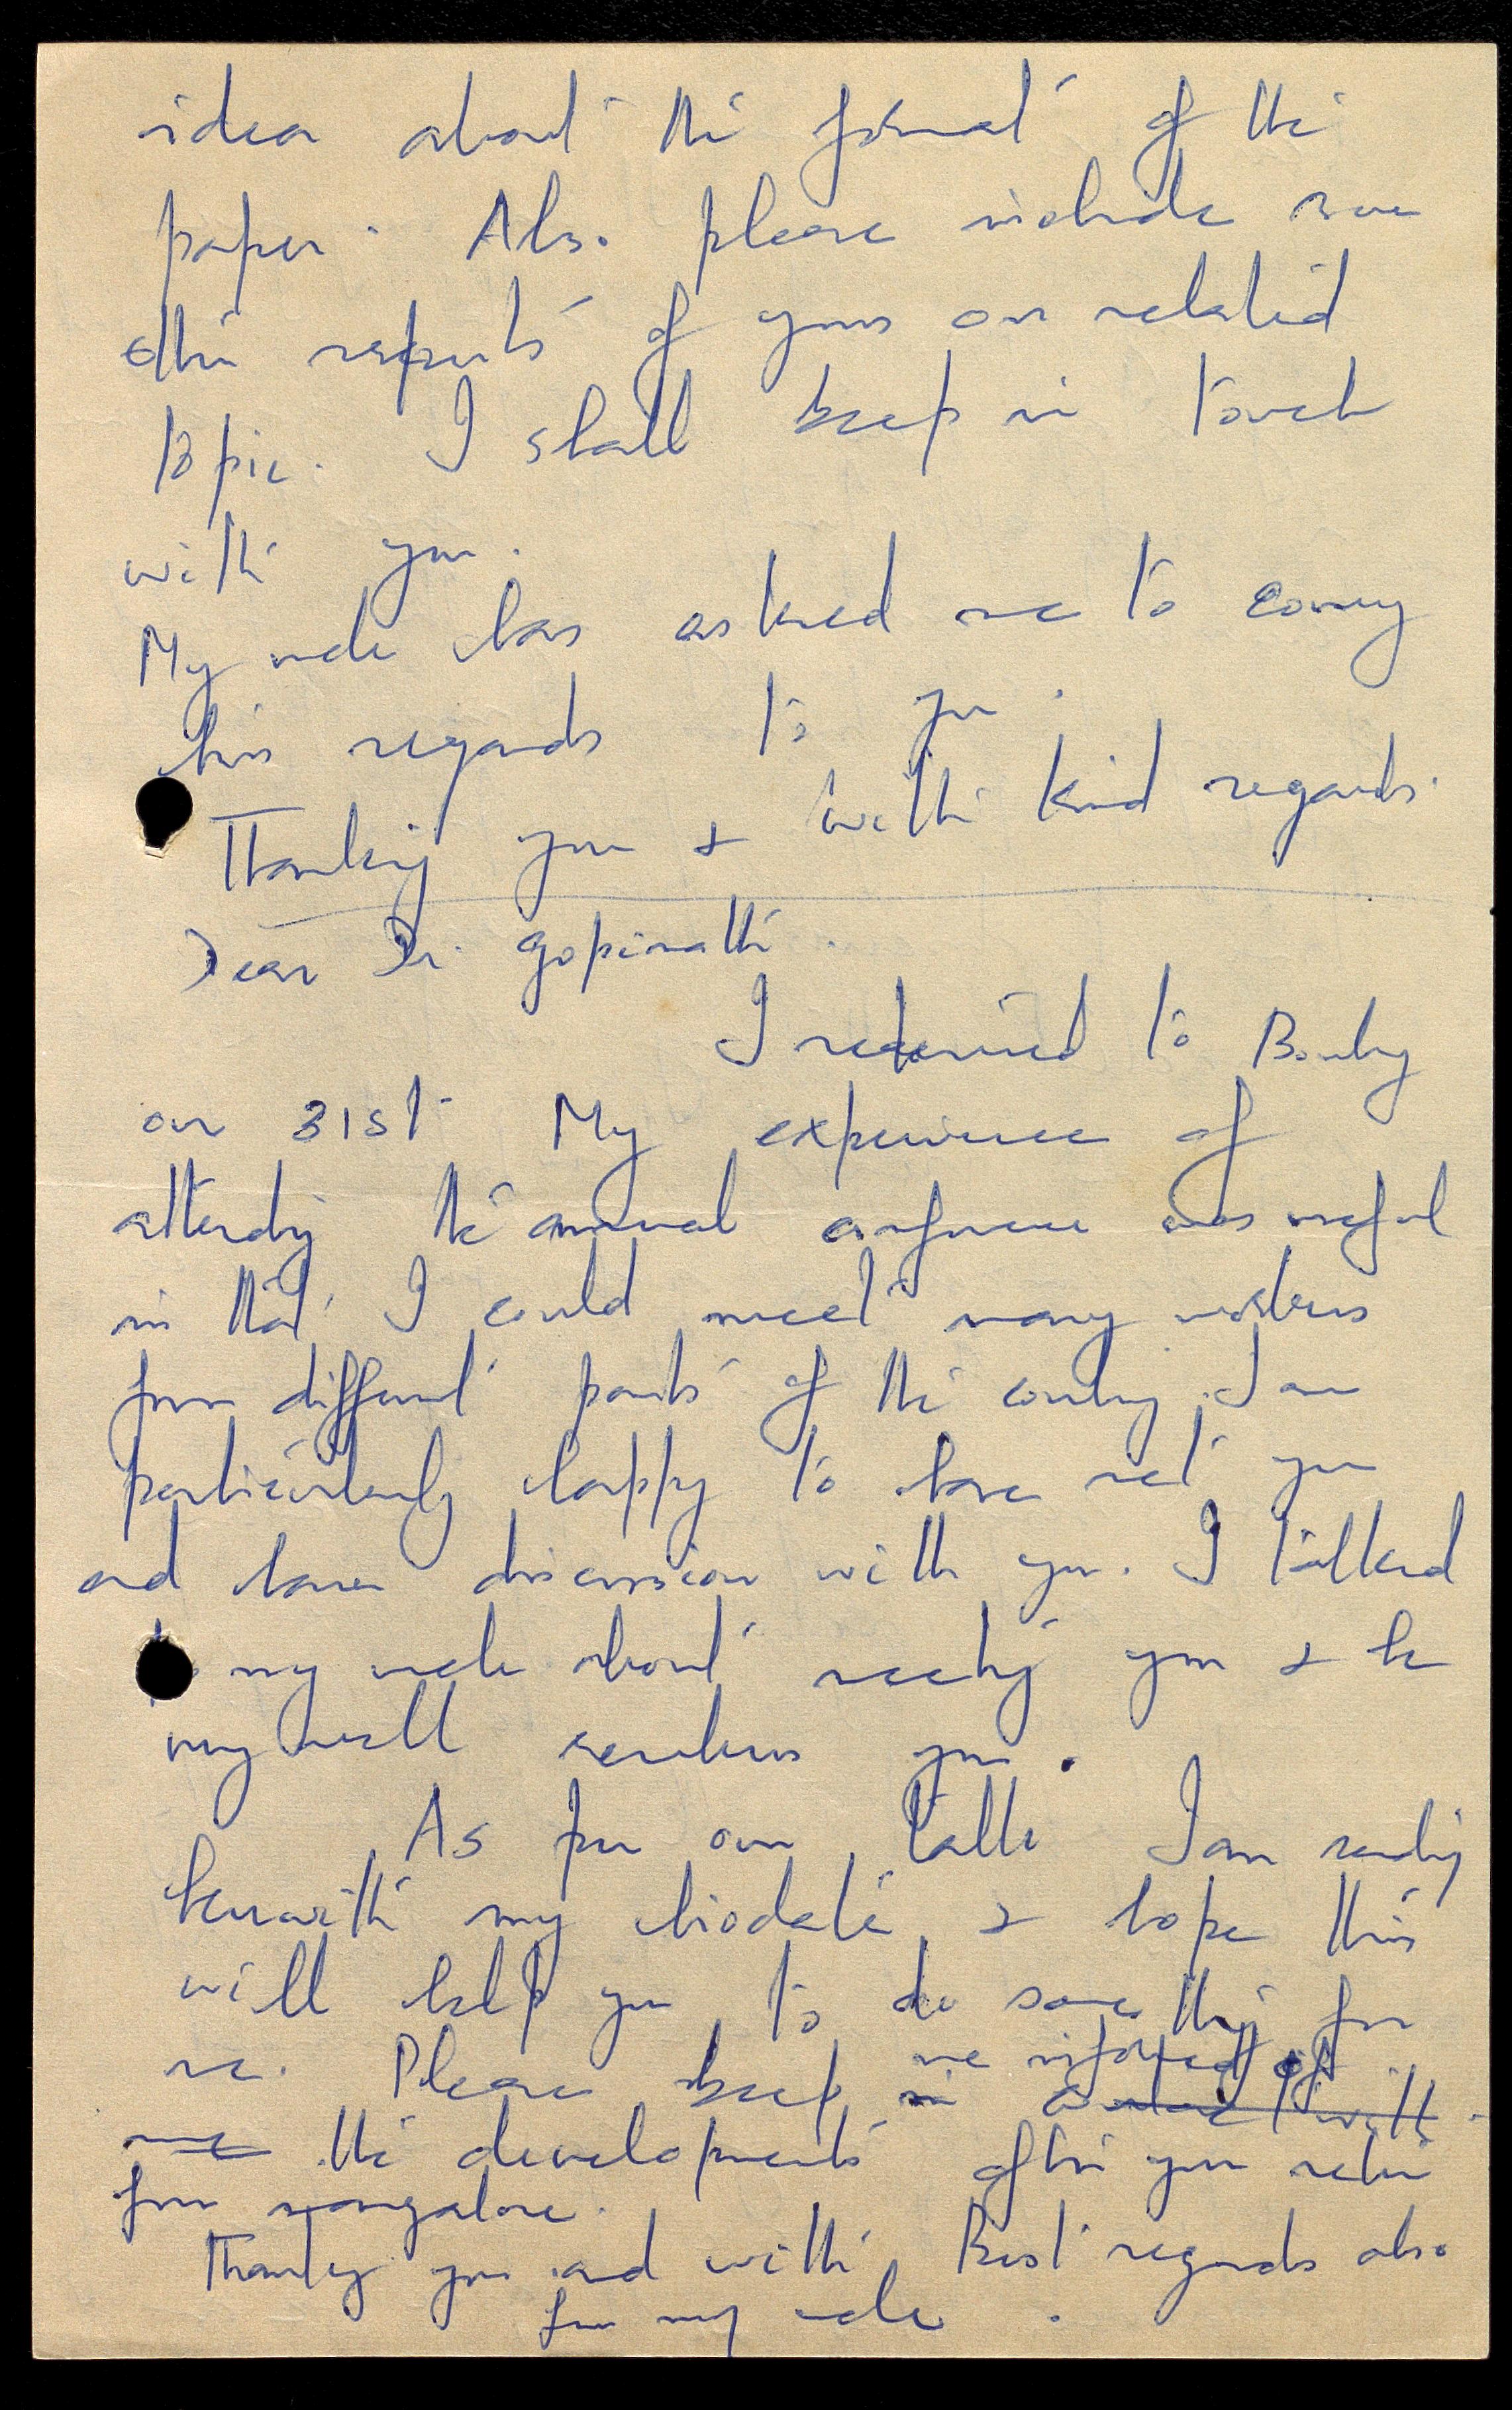 idea about the format of the
paper. Also please include some
other reprints of yours on related
topic. I shall keep in touch
with you.
My uncle has asked me to convey
his regards to you.
Thanking you & with kind regards.
Dear Dr. Gopinath.
I returned to Bombay
on 31st. My experience of
attending the annual conference was useful
in that I could meet many workers
from different parts of the country. I am
particularly happy to have met you
and have discussion with you. I talked
to my uncle about meeting you & he
very well remembers you.
As per our talk I am sending
herewith my biodata & hope this
will help you to do something for
me. Please keep me informed of
in contact with
me the developments after you return
from Mangalore.
Thanking you and with Best regards also
from my uncle.